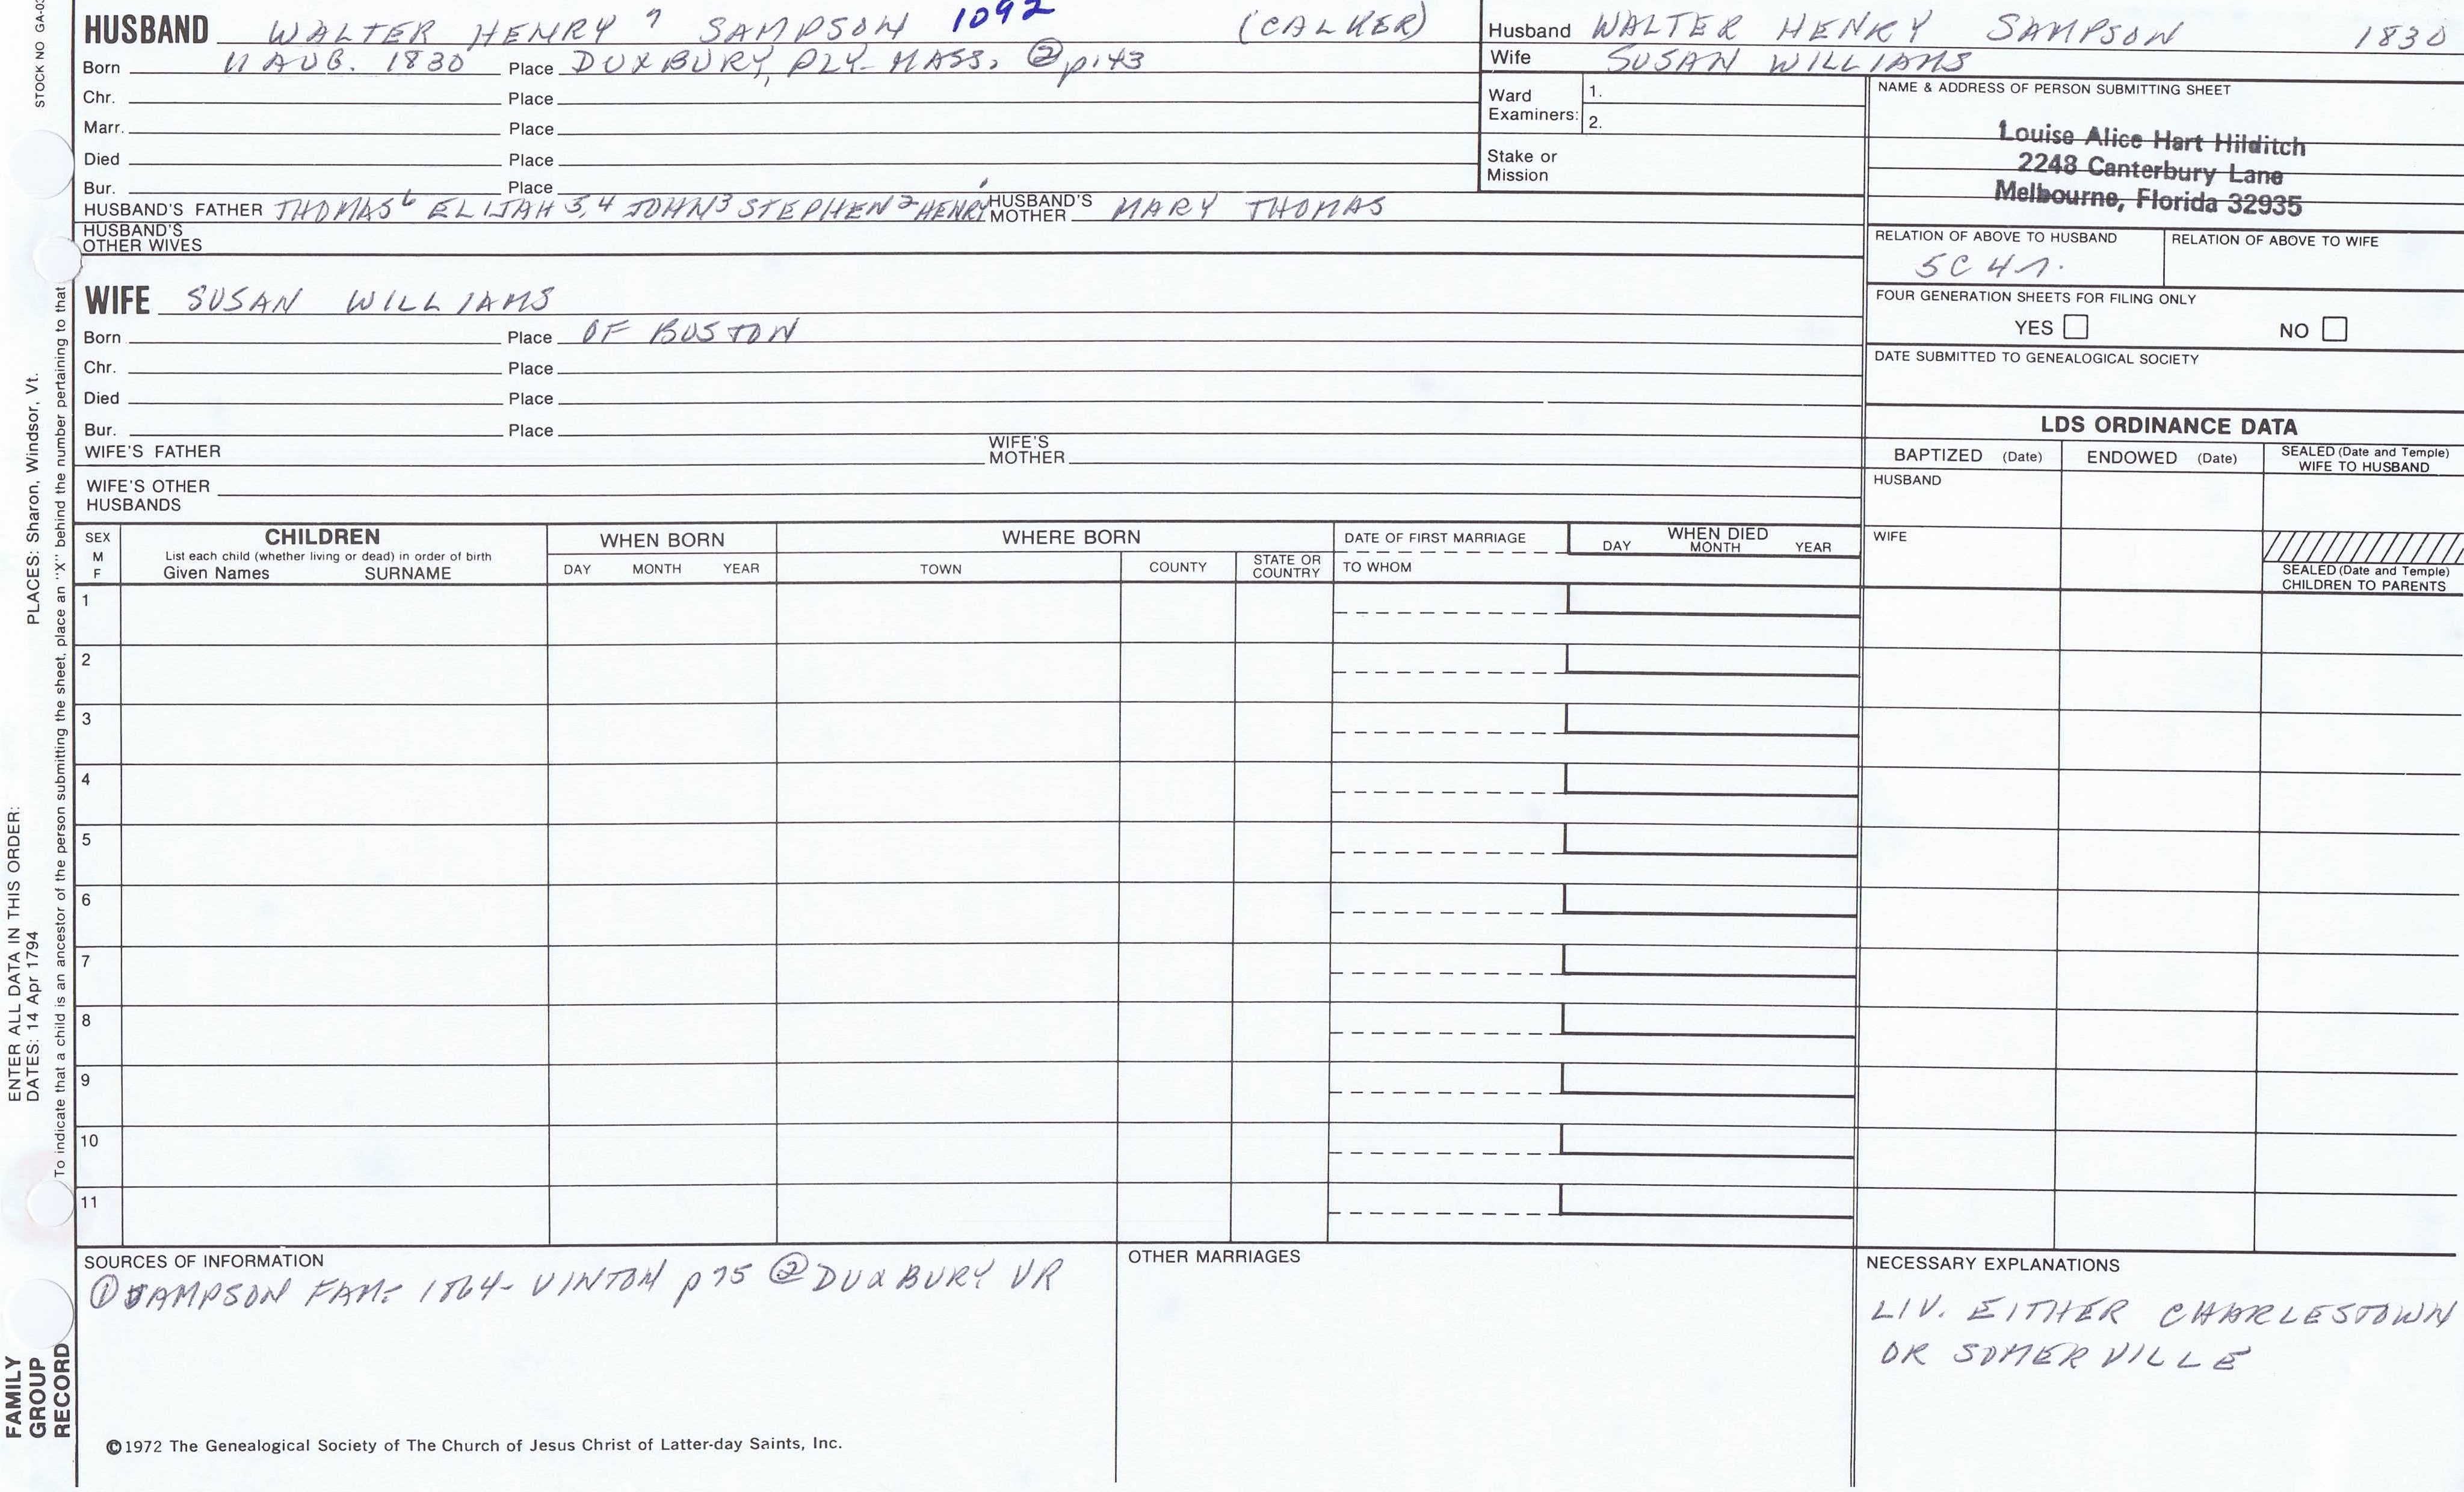 STOCK NO GA-0
HUSBAND WALTER HENRY 7 SAMPSON 1092 (CALKER)
Born 11 AUG. 1830 Place DUXBURY, PLY- MASS. ② p.143
Chr. Place
Marr. Place
Died Place
Bur. Place
HUSBAND'S FATHER THOMAS 6 ELIJAH 5,4 JOHN 3 STEPHEN 2 HENRY 1 HUSBAND'S MOTHER MARY THOMAS
HUSBAND'S
OTHER WIVES
WIFE SUSAN WILLIAMS
Born Place OF BOSTON
Chr. Place
Died Place
Bur. Place
WIFE'S FATHER WIFE'S MOTHER
WIFE'S OTHER
HUSBANDS
Husband WALTER HENRY SAMPSON 1830
Wife SUSAN WILLIAMS
Ward Examiners: 1.
2.
Stake or
Mission
NAME & ADDRESS OF PERSON SUBMITTING SHEET
Louise Alice Hart Hilditch
2248 Canterbury Lane
Melbourne, Florida 32935
RELATION OF ABOVE TO HUSBAND RELATION OF ABOVE TO WIFE
5C 4r.
FOUR GENERATION SHEETS FOR FILING ONLY
YES NO
DATE SUBMITTED TO GENEALOGICAL SOCIETY
LDS ORDINANCE DATA
BAPTIZED (Date) ENDOWED (Date) SEALED (Date and Temple)
WIFE TO HUSBAND
HUSBAND
WIFE
SEALED (Date and Temple)
CHILDREN TO PARENTS
SEX
M
F
CHILDREN
List each child (whether living or dead) in order of birth
Given Names SURNAME
WHEN BORN
DAY MONTH YEAR
WHERE BORN
TOWN COUNTY STATE OR COUNTRY
DATE OF FIRST MARRIAGE
TO WHOM
WHEN DIED
DAY MONTH YEAR
1
2
3
4
5
6
7
8
9
10
11
SOURCES OF INFORMATION
① SAMPSON FAM- 1864- VINTON p 75 ② DUXBURY VR
OTHER MARRIAGES
NECESSARY EXPLANATIONS
LIV. EITHER CHARLESTOWN
OR SOMERVILLE
©1972 The Genealogical Society of The Church of Jesus Christ of Latter-day Saints, Inc.
FAMILY
GROUP
RECORD
ENTER ALL DATA IN THIS ORDER:
DATES: 14 Apr 1794 PLACES: Sharon, Windsor, Vt.
To indicate that a child is an ancestor of the person submitting the sheet, place an "X" behind the number pertaining to that